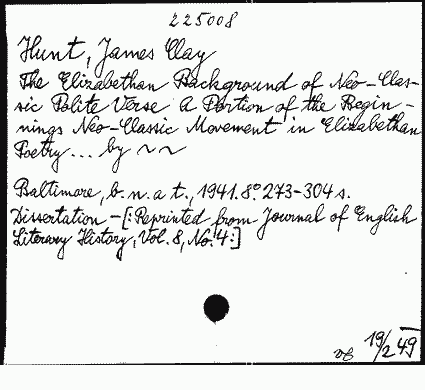 225008
Hunt, James Clay
The Elizabethan Background of Neo-Clas-
sic Polite Verse A Portion of the Begin-
nings Neo-Classic Movement in Elizabethan
Poetry... by ~ ~
Baltimore, b. n. a t., 1941. 8° 273-304 s.
Dissertation - [: Reprinted from Journal of English
Literary History, Vol. 8, No. 4:]
19/2 49